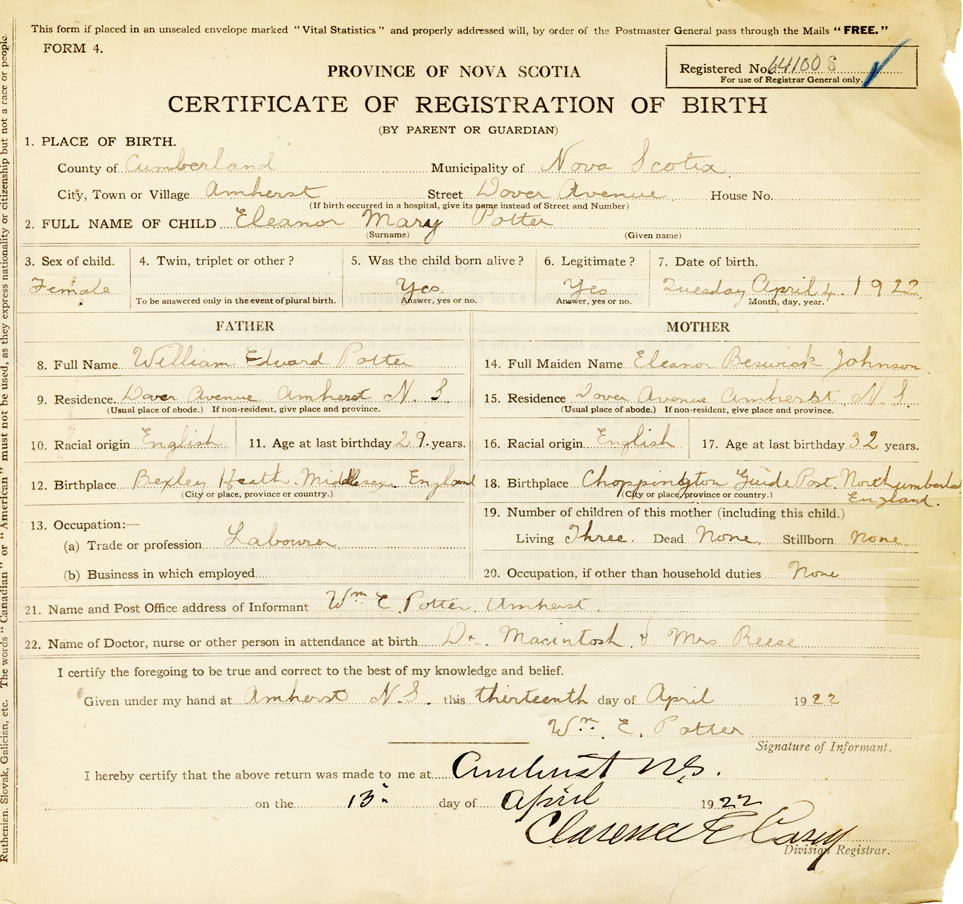 This form if placed in an unsealed envelope marked "Vital Statistics" and properly addressed will, by order of the Postmaster General pass through the Mails "FREE."
FORM 4.
Registered No. 641008
For use of Registrar General only.
PROVINCE OF NOVA SCOTIA
CERTIFICATE OF REGISTRATION OF BIRTH
(BY PARENT OR GUARDIAN)
1. PLACE OF BIRTH.
County of Cumberland Municipality of Nova Scotia
City, Town or Village Amherst Street Dover Avenue House No.
(If birth occurred in a hospital, give its name instead of Street and Number)
2. FULL NAME OF CHILD Eleanor Mary Potter
(Surname) (Given name)
3. Sex of child. 4. Twin, triplet or other? 5. Was the child born alive? 6. Legitimate? 7. Date of birth.
Female Yes Yes Tuesday April 4. 1922
To be answered only in the event of plural birth. Answer, yes or no. Answer, yes or no. Month, day, year.
FATHER MOTHER
8. Full Name William Edward Potter 14. Full Maiden Name Eleanor Beswick Johnson
9. Residence Dover Avenue Amherst N S 15. Residence Dover Avenue Amherst N S
(Usual place of abode.) If non-resident, give place and province. (Usual place of abode.) If non-resident, give place and province.
10. Racial origin English 11. Age at last birthday 29 years. 16. Racial origin English 17. Age at last birthday 32 years.
12. Birthplace Bexley Heath Middlesex England 18. Birthplace Choppington Guide Post Northumberland
England.
(City or place, province or country.) (City or place, province or country.)
13. Occupation:— 19. Number of children of this mother (including this child.)
(a) Trade or profession Labourer Living Three. Dead None. Stillborn None
(b) Business in which employed 20. Occupation, if other than household duties None
21. Name and Post Office address of Informant Wm E. Potter Amherst
22. Name of Doctor, nurse or other person in attendance at birth Dr. Macintosh & Mrs Reese
I certify the foregoing to be true and correct to the best of my knowledge and belief.
Given under my hand at Amherst N.S. this thirteenth day of April 1922
Wm. E. Potter
Signature of Informant.
I hereby certify that the above return was made to me at Amherst N.S.
on the 13th day of April 1922
Clarence E Casey
Division Registrar.
Ruthenian, Slovak, Galician, etc. The words "Canadian" or "American" must not be used, as they express nationality or citizenship but not a race or people.